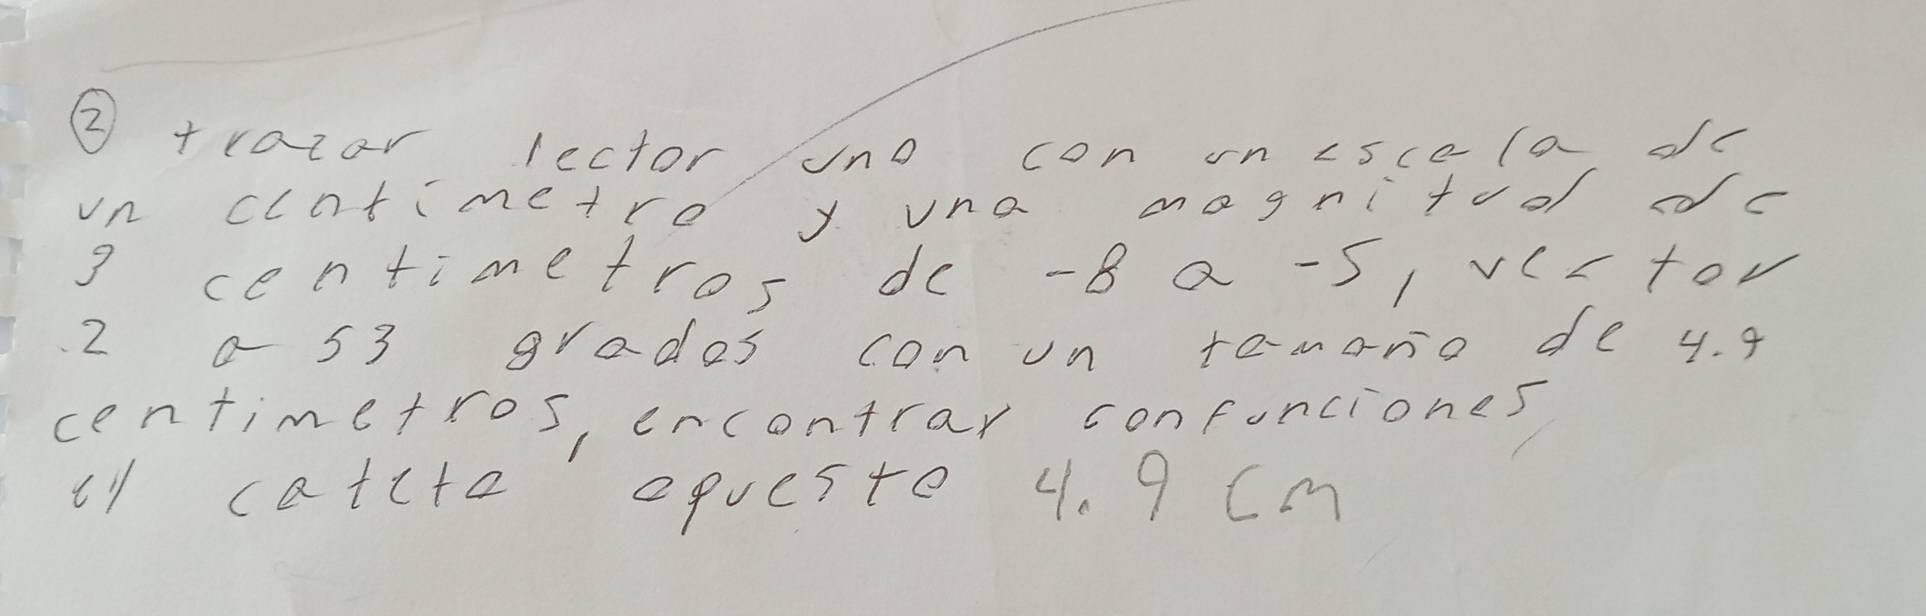 ② trazar lector uno con un escala de
un centimetro y una magnitud de
3 centimetros de -8 a -5, vector
2 a 53 grados con un tamaño de 4.9
centimetros, encontrar con funciones
el cateto opuesto 4.9 cm